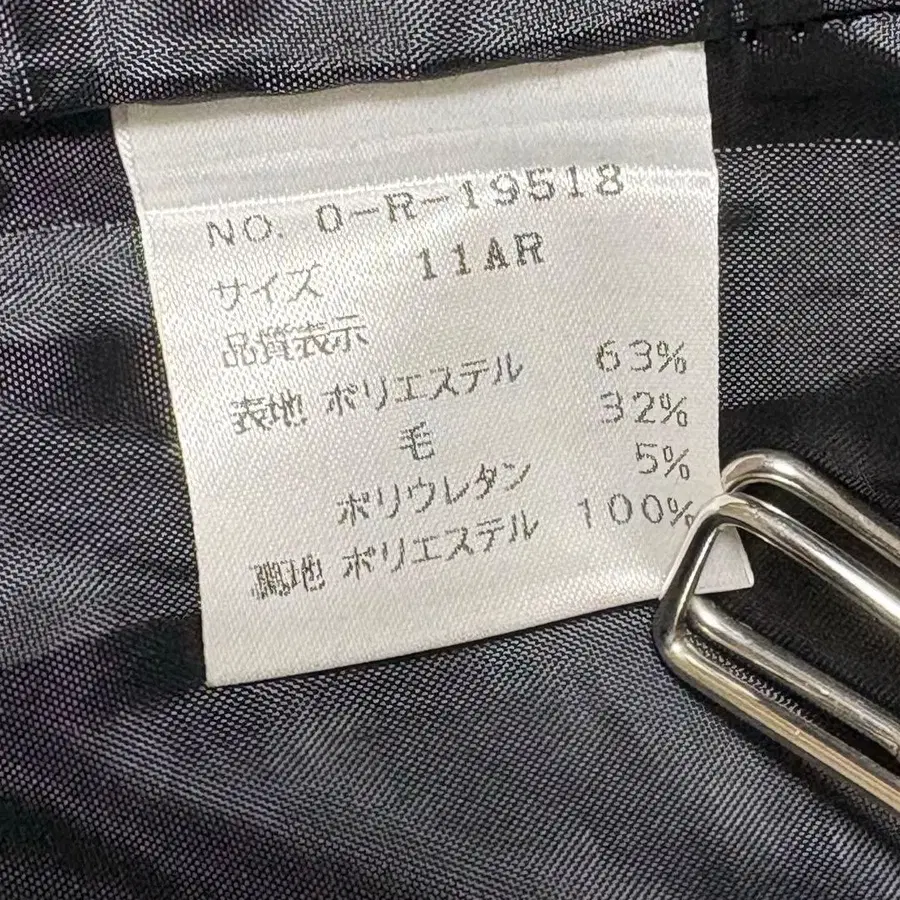 NO. 0-R-19518
サイズ 11AR
品質表示
表地 ポリエステル 63%
毛 32%
ポリウレタン 5%
裏地 ポリエステル 100%